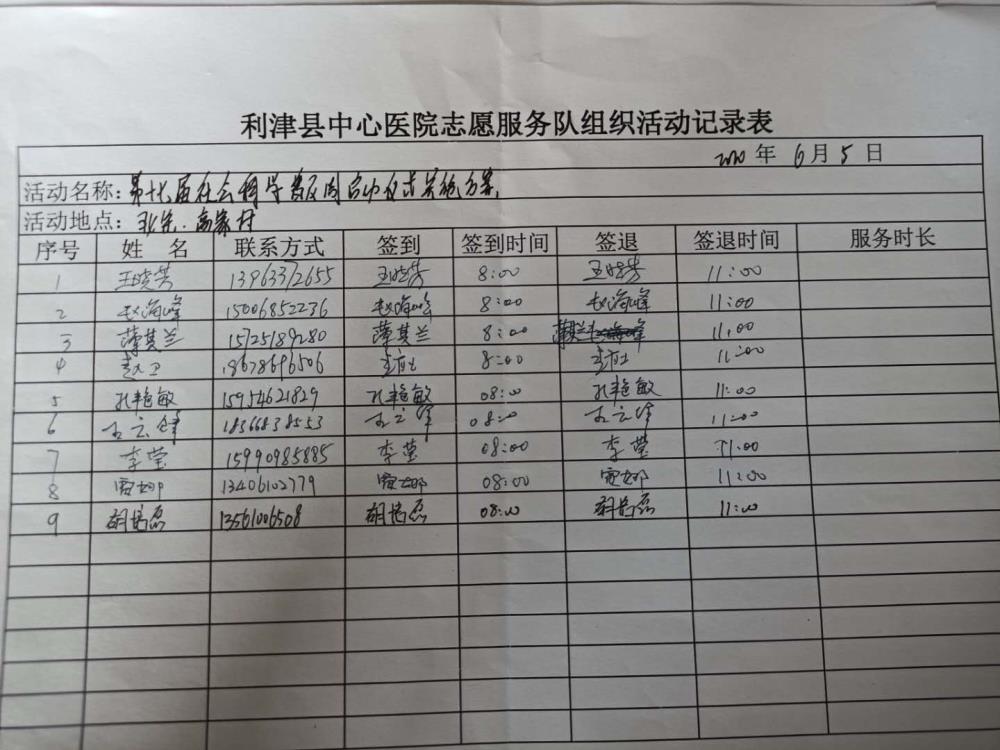 利津县中心医院志愿服务队组织活动记录表
2020 年 6 月 5 日
活动名称: 第十七届社会科学普及周启动仪式实施方案
活动地点: 北宋.高家村
序号 姓 名 联系方式 签到 签到时间 签退 签退时间 服务时长
1 王晓芳 13963372655 王晓芳 8:00 王晓芳 11:00
2 赵海峰 15006852236 赵海峰 8:00 赵海峰 11:00
3 薄其兰 15725189280 薄其兰 8:00 薄其兰 11:00
4 18678696506 8:00 11:00
5 孔艳敏 15954621829 孔艳敏 08:00 孔艳敏 11:00
6 18366838553 08:00 11:00
7 李莹 15990985885 李莹 08:00 李莹 11:00
8 13406102779 08:00 11:00
9 13561006508 08:00 11:00